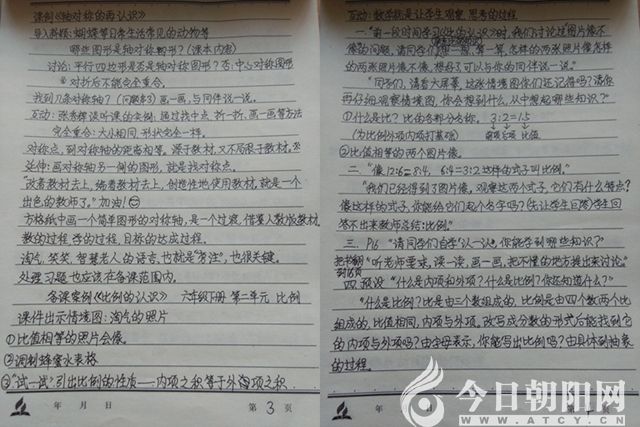 课例《轴对称的再认识》
导入新颖:蝴蝶等日常生活常见的动物等
哪些图形是轴对称图形?(课本内容)
讨论:平行四边形是否是轴对称图形?否.中心对称图形
对折后不能完全重合.
找到几条对称轴?(问题串3)画一画,与同伴说一说。
互动:张老师谈听课的实例:通过找中点 折一折、画一画等方法
完全重合:大小相同.形状完全一样.
对称点,到对称轴的距离相等.源于教材,又不局限于教材。
延伸:画对称轴另一侧的图形,就是找对称点。
"沿着教材去上,绕着教材去上,创造性地使用教材,就是一个
出色的教师了。"加油!
方格纸中画一个简单图形的对称轴,是一个过渡.借鉴人教版教材
教的过程,学的过程,目标的达成过程.
淘气,笑笑,智慧老人的语言,也就是"旁注",也很关键。
处理习题也应该在备课范围内。
备课案例《比例的认识》 六年级下册 第二单元 比例
课件出示情境图:淘气的照片
①比值相等的照片会像。
②调制蜂蜜水表格
③"试一试"引出比例的性质——内项之积等于外项之积.
年 月 日 第 3 页
互动:数学就是让学生观察.思考的过程.
一."前一段时间学习《比的认识》时,我们讨论过"图片像不
像的问题,请同学们想一想,算一算,怎样的两张照片像怎样
的两张照片不像,想好了可以与你的同伴说一说。"
"同学们,请看大屏幕,这张情境图你们还记得吗?请你
再仔细观察情境图,你会想到什么,从中想起哪些知识?"
①什么是比?比的各部分名称. 3:2=1.5
(为比例外项内项打基础) 前项 后项 比值
②比值相等的两个图片像.
二."像12:6=8:4, 6:4=3:2这样的式子叫比例。"
"我们已经得到了图片像,观察这两个式子,它们有什么特点?
像这样的式子,你能给它们起个名字吗?(先让学生回答)学生回
答不出来教师总结:比例。"
三. P16 "请同学们自学"认一认",你能学到哪些知识?"
把书翻到16页 "听老师要求,读一读,画一画,把不懂的地方提出来讨论。"
四.预设"什么是内项和外项?什么是比例?你还知道什么?"
"什么是比例?比是由三个数组成的,比例是由四个数两个比
组成的,比值相同,内项与外项,改写成分数的形式后能找到它
的内项与外项吗?由字母表示,你能写出比例吗?由具体到抽象
的过程.
年 月 日 第 页
今日朝阳网
WWW.ATCY.CN